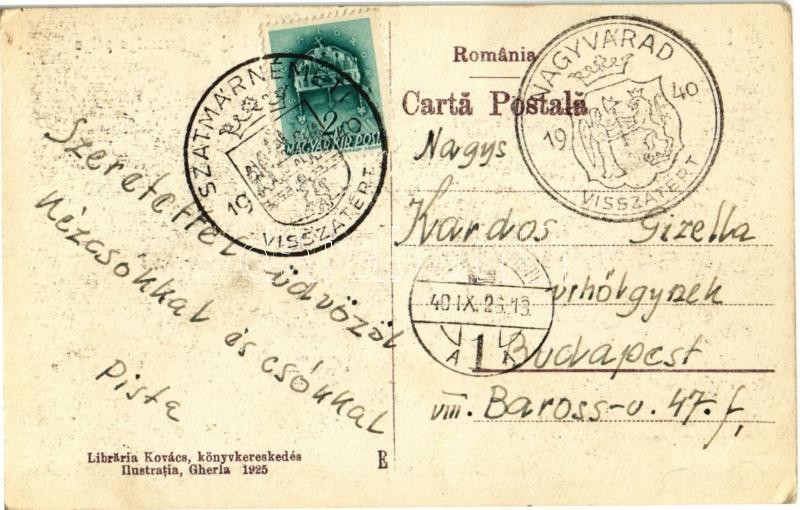 România
Carta Postală
SZATMÁRNÉMETI
1940
VISSZATÉRT
2
MAGYAR KIR. POSTA
NAGYVÁRAD
19 40
VISSZATÉRT
Szeretettel üdvözöl
kézcsókkal és csókkal
Pista
Nagys
Kardos Gizella
urhölgynek
40 IX. 26. 18
A 1
Budapest
VIII. Baross-u. 47. f.
Librăria Kovács, könyvkereskedés
Ilustrația, Gherla 1925
E